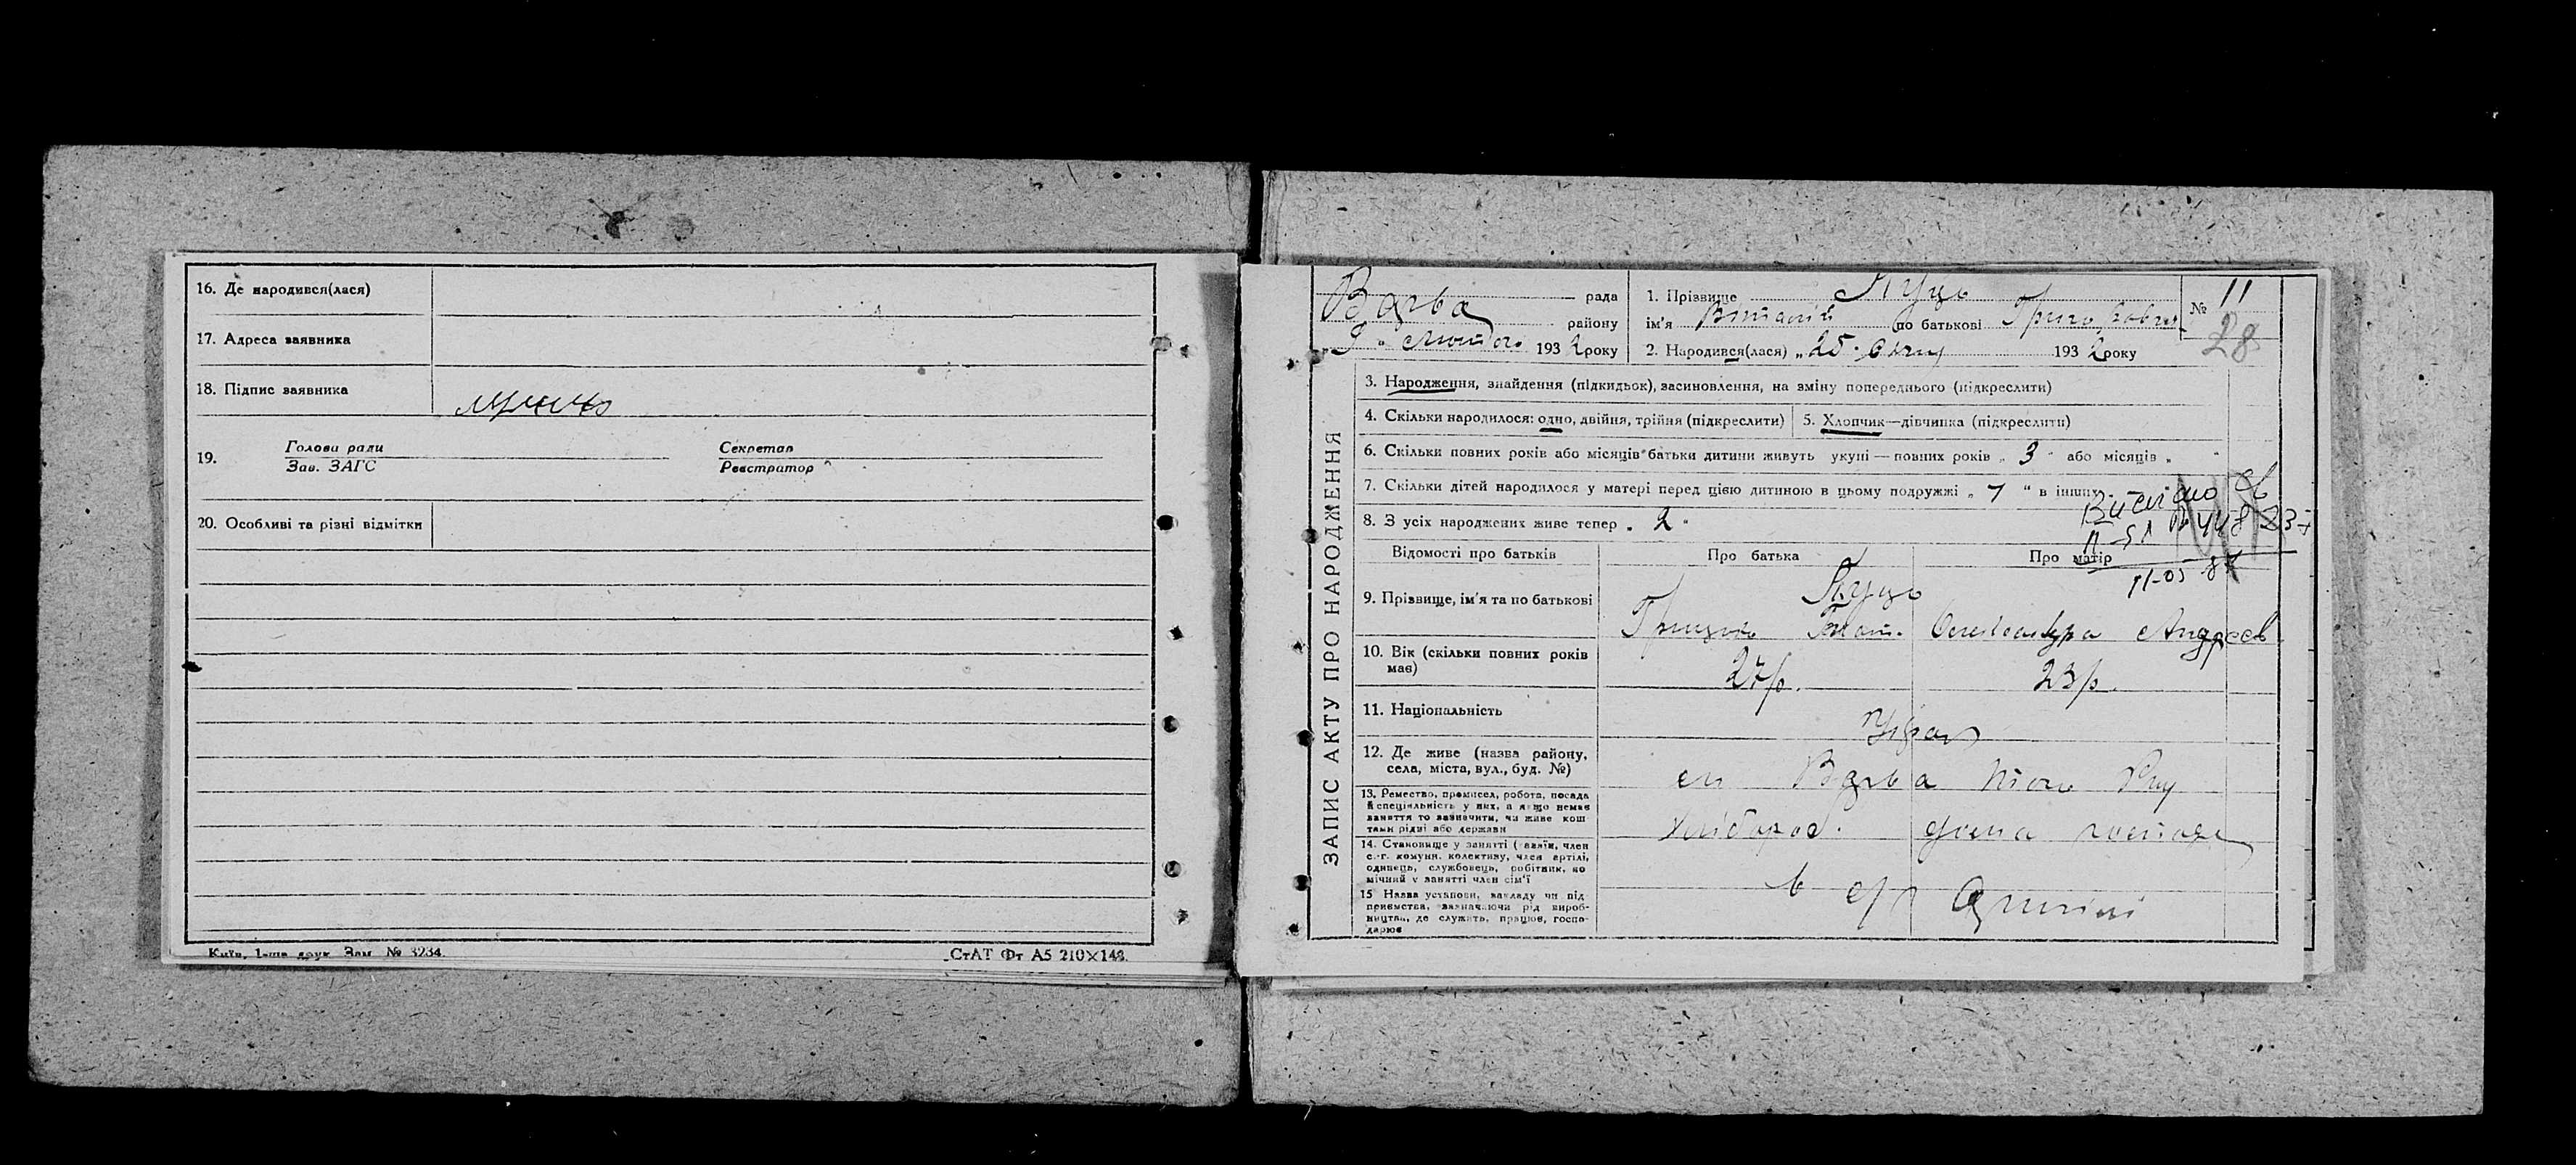 16. Де народився(лася)
17. Адреса заявника
18. Підпис заявника
19. Голова ради Секретар
Зав. ЗАГС Реєстратор
20. Особливі та різні відмітки
Київ, 1-ша друк. Зам. № 3234.
СтАТ Фт А5 210×148.
ЗАПИС АКТУ ПРО НАРОДЖЕННЯ
Варва рада
району
лютого 1932 року
1. Прізвище Куць
ім'я Віталій по батькові
2. Народився(лася) „25 січня 1932 року
№ 11
28
3. Народження, знайдення (підкидьок), засиновлення, на зміну попереднього (підкреслити)
4. Скільки народилося: одно, двійня, трійня (підкреслити)
5. Хлопчик—дівчинка (підкреслити)
6. Скільки повних років або місяців батьки дитини живуть укупі — повних років „ 3 " або місяців „ "
7. Скільки дітей народилося у матері перед цією дитиною в цьому подружжі „ 1 " в інших
8. З усіх народжених живе тепер „ 2 "
11-05
Відомості про батьків Про батька Про матір
9. Прізвище, ім'я та по батькові Куць
Олександра Андреєв
10. Вік (скільки повних років має) 27 р. 23 р.
11. Національність Укра
12. Де живе (назва району, села, міста, вул., буд. №) Варва
13. Ремество, промисел, робота, посада й спеціяльність у них, а якщо немає заняття то зазначити, чи живе коштами рідні або держави Хлібороб. домагосподар
14. Становище у занятті (хазяїн, член с.-г. комуни, колективу, член артілі, одинець, службовець, робітник, помічний у занятті член сім'ї
15 Назва установи, закладу чи підприємства, зазначаючи рід виробництва, де служить, працює, господарює
в с/г Артілі